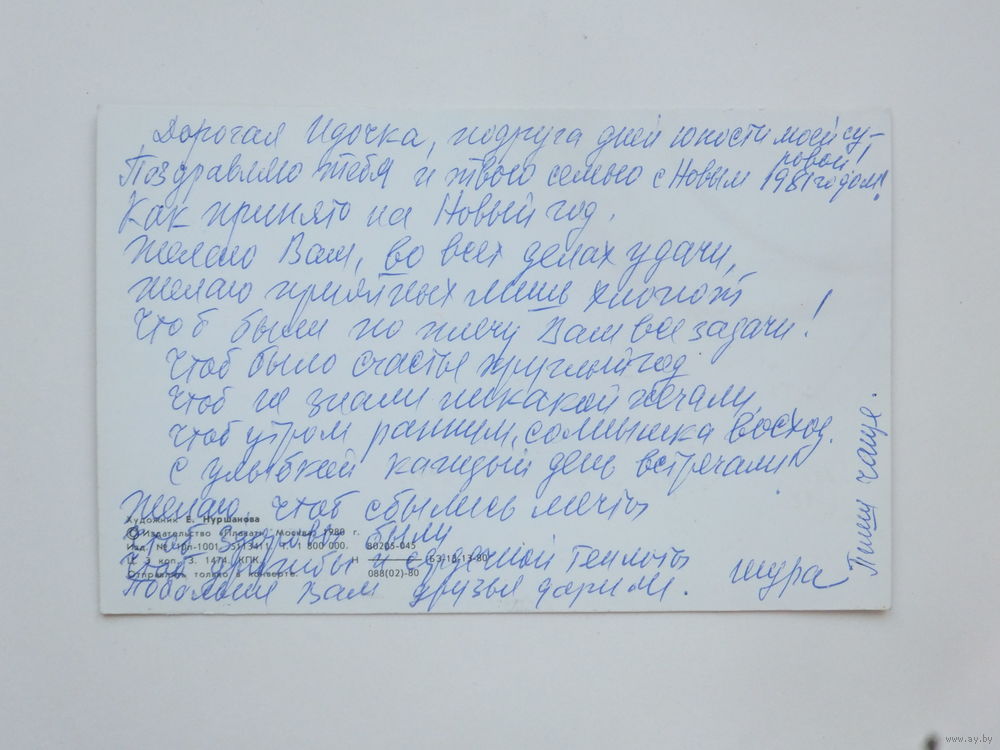 Дорогая Идочка, подруга дней юности моей су-
ровой!
Поздравляю тебя и твою семью с Новым 1981 годом!
Как принято на Новый год.
Желаю Вам, во всех делах удачи,
желаю приятных лишь хлопот
Чтоб были по плечу Вам все задачи!
Чтоб было счастье круглый год
Чтоб не знали никакой печали,
Чтоб утром ранним, солнышка восход
с улыбкой каждый день встречали
Желаю, чтоб сбылись мечты
Художник Е. Нуршанова
чтоб здоровы были
© Издательство «Плакат» Москва 1980 г.
Изд. № 10л-1001. 5113411. Т. 1 800 000.
80205-045
чтоб дружбы и сердечной теплоты
Ц. 3 коп. З. 1474. КПК.
Н
63-15-13-80
Отправлять только в конверте.
088(02)-80
побольше Вам друзья дарили.
Шура
Пиши чаще.
www.ay.by